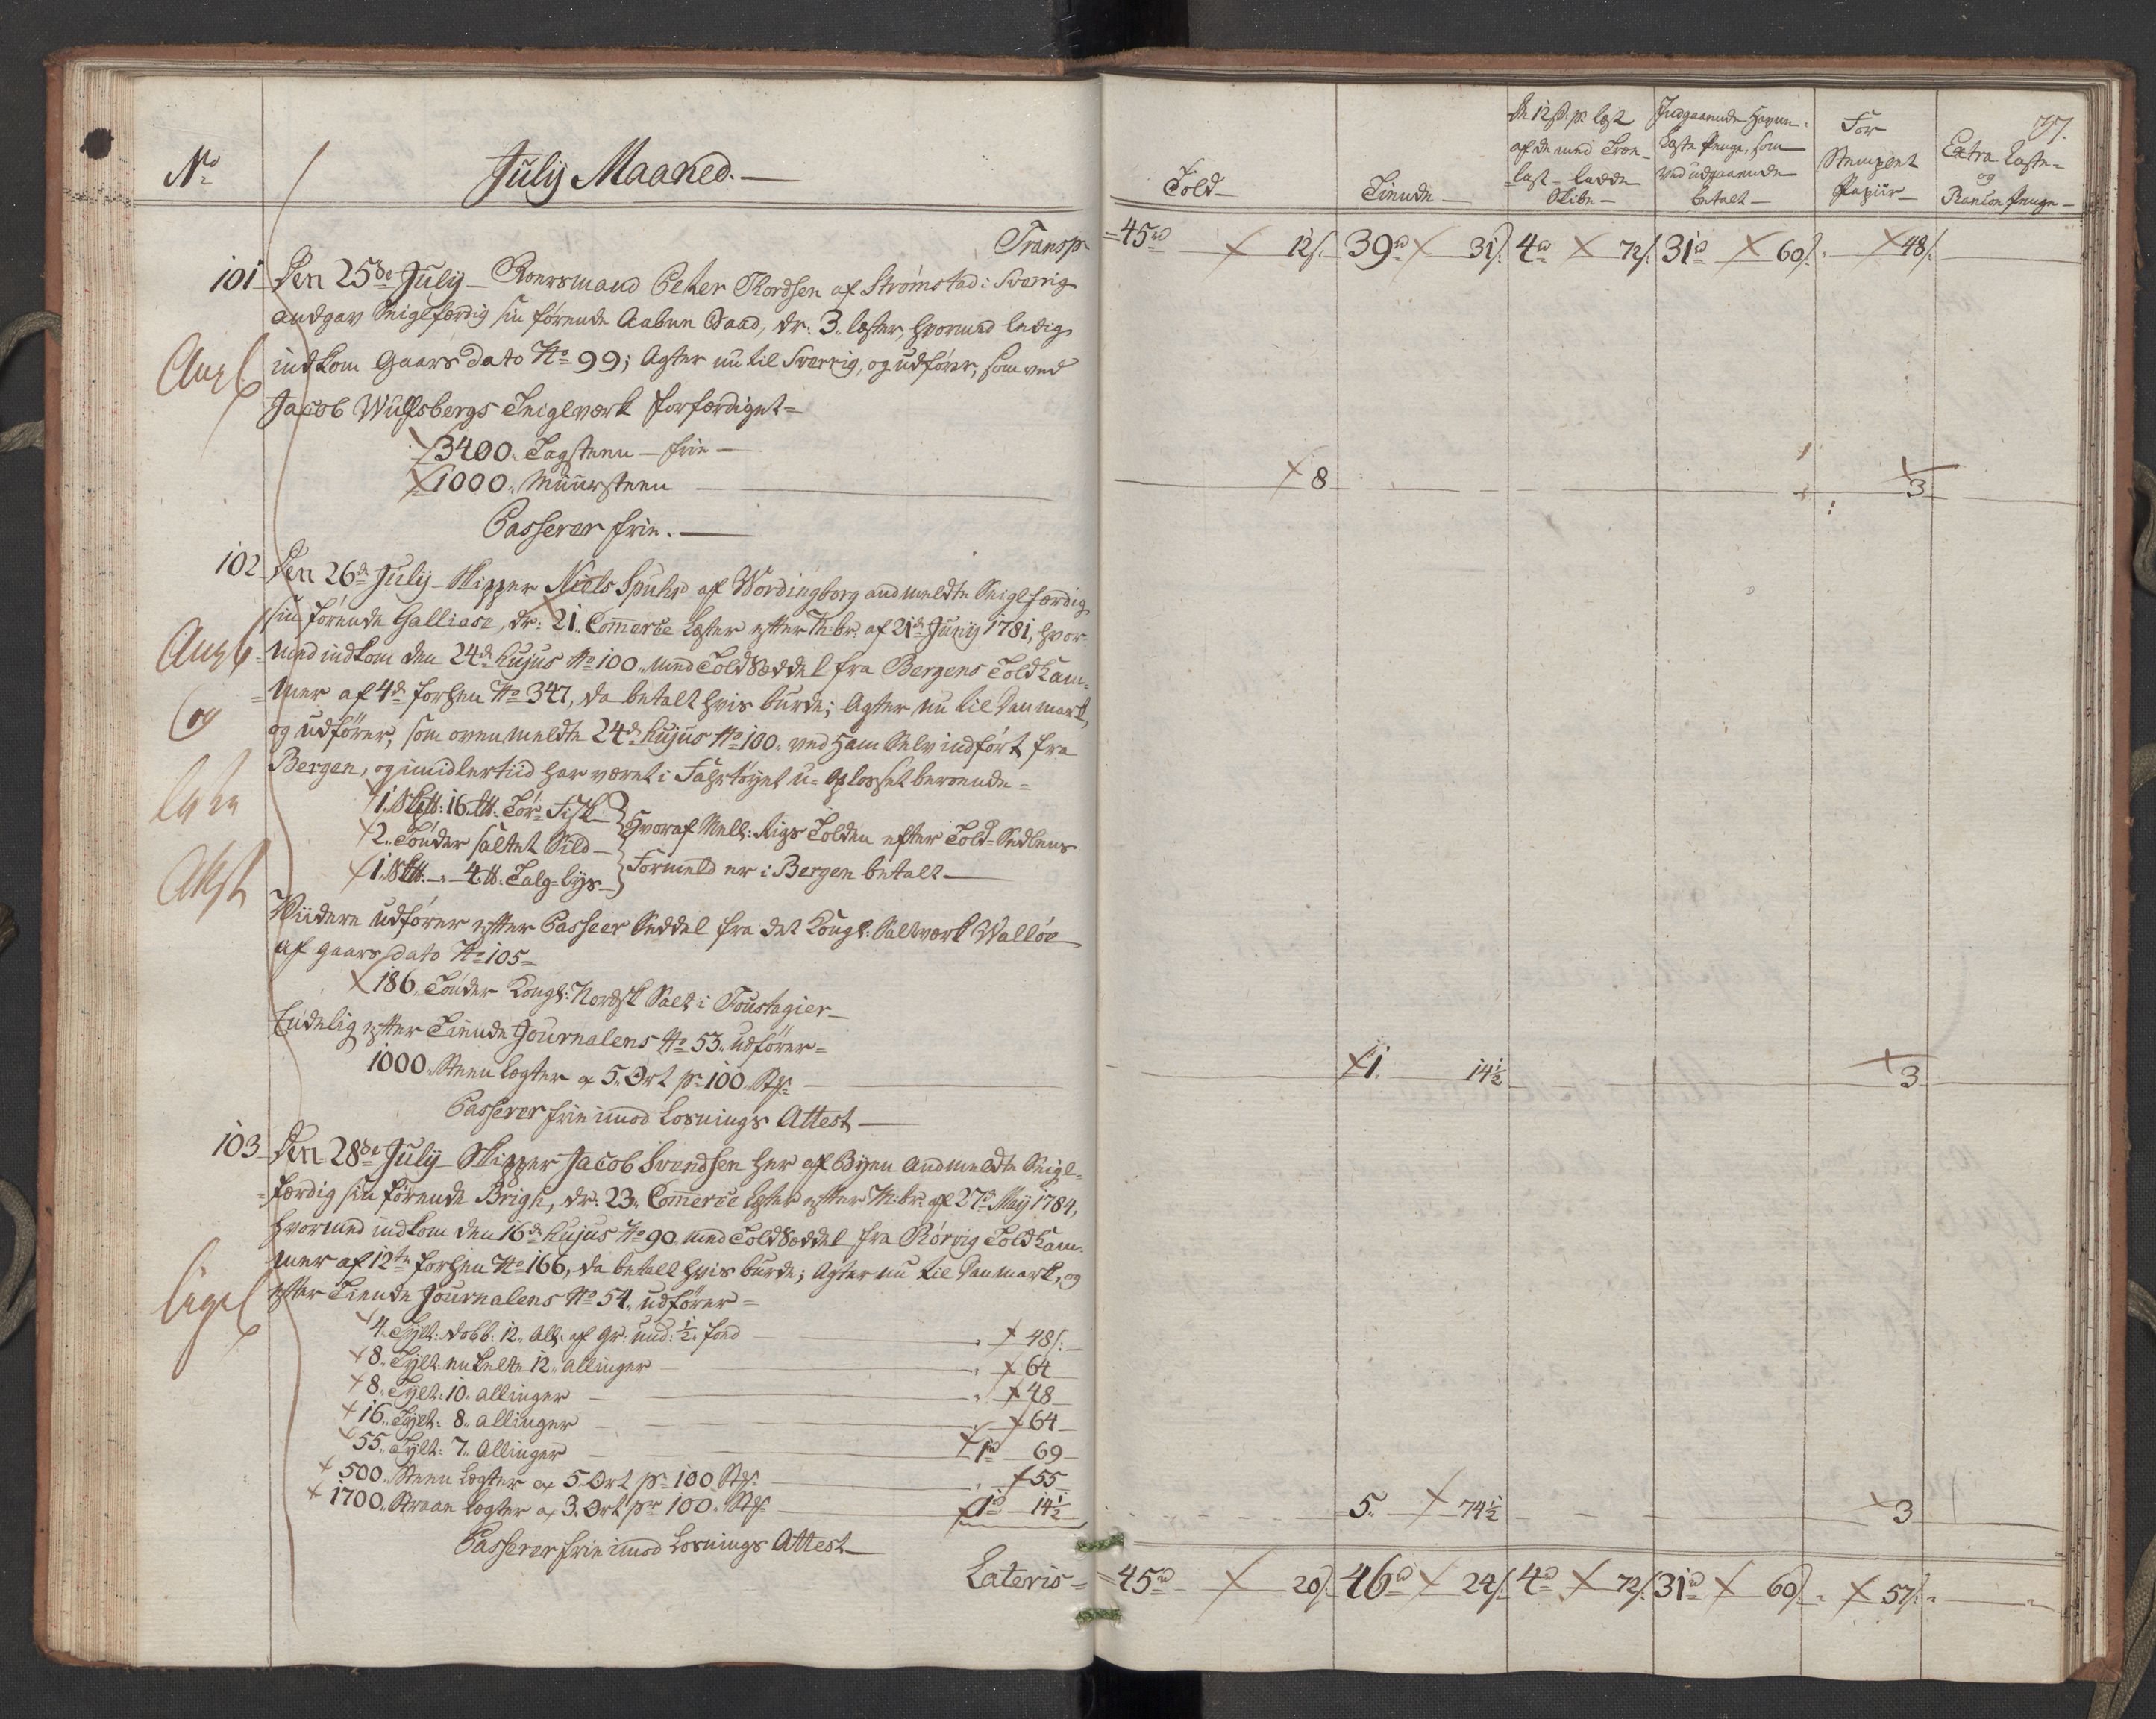 No
July Maaned.
Transp
101 Den 25de July Roersmand Peter Thordsen af Strømstad i Sverrig
andgav Seiglfærdig sin førende Aaben Baad, dr: 3 læster, hvormed ledig
Angl indkom Gaars Dato No 99; Agter nu til Sverrig, og udfører, som ved
Jacob Wulfsbergs Teiglværk forfærdiget
3400 Tagsteen frie
1000 Muursteen
Passerer frie.
102 Den 26de July Skipper Niels Spuhr af Wordingborg andmeldte Seiglfærdig
sin førende Galliace, dr: 21 Commerce Læster efter M:br: af 21de Juny 1781, hvor-
med indkom den 24de hujus No 100 med Toldseddel fra Bergens Told Cam-
mer af 4de forhen No 347, da betalt hvis burde; Agter nu til Danmark,
og
og udfører, som ovenmeldte 24de hujus No 100 ved Ham Selv indført fra
Bergen, og imidlertiid har været i Fahrtøyet u-oplosset beroende
1 Sk℔: 16 ℔ Tør-Fisk
2 Tønder saltet Sild
1 S℔ 4 ℔ Talg-Lys
Hvoraf Mell: Rigs Tolden efter Told-Sedlens
Formeld er i Bergen betalt
Wiidere udfører efter Passeer Seddel fra det Kongl: Saltværk Walløe
af gaars dato No 105
186 Tønder Kongl: Norsk Salt i Foustagier
Endelig efter Tiende Journalens No 53 udfører
1000 Steen Lægter a 5 Ort pr 100 Sty:
Passerer frie imod Losnings Attest
103 Den 28de July Skipper Jacob Svendsen her af Byen andmeldte Seigl-
færdig sin førende Brigh, dr: 23 Commerce Læster efter M:br: af 27de May 1784,
hvormed indkom den 16de hujus No 90 med Toldseddel fra Rørvig Told Cam-
mer af 12te forhen No 166, da betalt hvis burde; Agter nu til Danmark, og
efter Tiende Journalens No 54 udfører
4 Tylt: dobb: 12 All: af Gr: und: ½ fond 48 s:
8 Tylt: enkelte 12 allinger 64
8 Tylt: 10 allinger 48
16 Tylt: 8 allinger 64
55 Tylt: 7 Allinger 1 rd 69
500 Steen Lægter a 5 Ort pr 100 Sty: 55
1700 Straae Lægter a 3 Ort pr 100 Sty: 1 rd 14½
Passerer frie imod Losnings Attest
Lateris
77.
Told
Tiende
De 12 s: pr læst
af de med Træ-
last ladde
Skibe
Indgaaende Havne-
Læste Penge, som
ved udgaaende
betalt
For
Stemplet
Papiir
Extra Læste-
og
Rancon Penge
45 rd 12 s: 39 rd 31 s: 4 rd 72 s: 31 rd 60 s: 48 s:
8 3
1 14½ 3
5 74½ 3
45 rd 20 s: 46 rd 24 s: 4 rd 72 s: 31 rd 60 s: 57 s: